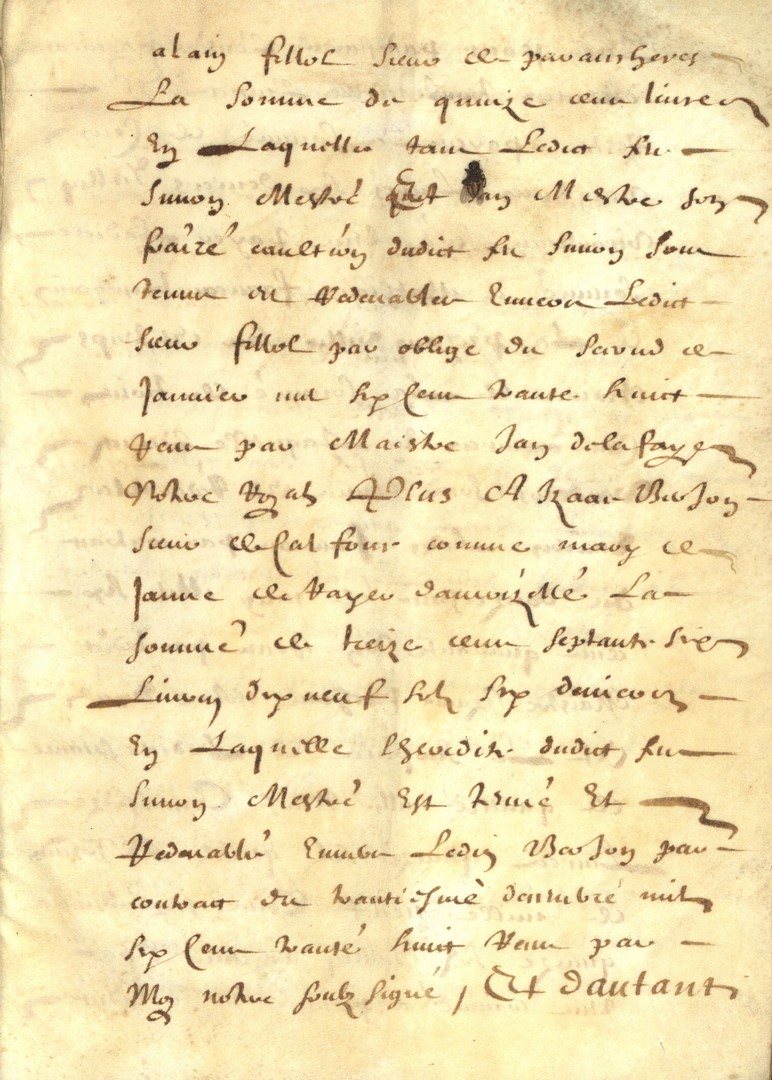 alain fillol sieur de
La somme de quinze cens livres
En Laquelle tant Ledict feu
Simon Mestre Et Jan Mestre son
fraire caultion dudict feu Simon sont
tenus et Redevables Envers Ledict
sieur fillol par oblige du second de
Janvier mil six Cens trante huict
Receu par Maistre Jan delafaye
Notre Royal Plus A Izaac Berjon
sieur de comme mary de
Janne de Damoizelle La
somme de treize cens septante six
Livres dix neuf solz six deniers
En Laquelle Lheredite dudict feu
Simon Mestre Est tenue Et
Redevable Envers Ledict Berjon par
contract du trantiesme mil
six Cens trante huict Receu par
Moy notre soubz signe, Et dautant